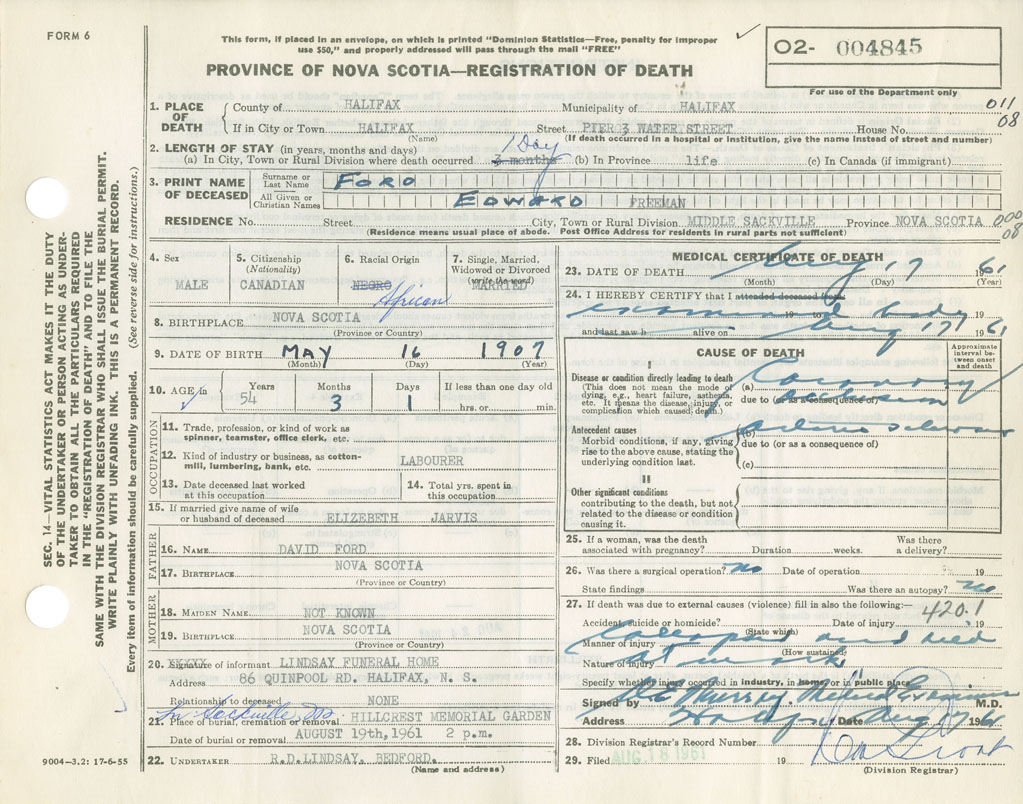 FORM 6
This form, if placed in an envelope, on which is printed "Dominion Statistics—Free, penalty for improper
use $50," and properly addressed will pass through the mail "FREE"
PROVINCE OF NOVA SCOTIA—REGISTRATION OF DEATH
02- 004845
For use of the Department only
SEC. 14—VITAL STATISTICS ACT MAKES IT THE DUTY
OF THE UNDERTAKER OR PERSON ACTING AS UNDER-
TAKER TO OBTAIN ALL THE PARTICULARS REQUIRED
IN THE "REGISTRATION OF DEATH" AND TO FILE THE
SAME WITH THE DIVISION REGISTRAR WHO SHALL ISSUE THE BURIAL PERMIT.
WRITE PLAINLY WITH UNFADING INK. THIS IS A PERMANENT RECORD.
Every item of information should be carefully supplied. (See reverse side for instructions.)
1. PLACE OF DEATH
County of HALIFAX Municipality of HALIFAX 011
If in City or Town HALIFAX Street PIER 3 WATER STREET House No. 08
(Name) (If death occurred in a hospital or institution, give the name instead of street and number)
2. LENGTH OF STAY (in years, months and days) 1 Day
(a) In City, Town or Rural Division where death occurred months (b) In Province life (c) In Canada (if immigrant)
3. PRINT NAME OF DECEASED
Surname or Last Name FORD
All Given or Christian Names EDWARD FREEMAN
RESIDENCE No. Street City, Town or Rural Division MIDDLE SACKVILLE Province NOVA SCOTIA 000
(Residence means usual place of abode. Post Office Address for residents in rural parts not sufficient) 08
4. Sex 5. Citizenship 6. Racial Origin 7. Single, Married,
(Nationality) Widowed or Divorced
(write the word)
MALE CANADIAN NEGRO MARRIED
African
8. BIRTHPLACE NOVA SCOTIA
(Province or Country)
9. DATE OF BIRTH MAY 16 1907
(Month) (Day) (Year)
10. AGE in Years Months Days If less than one day old
54 3 1 hrs. or min.
OCCUPATION
11. Trade, profession, or kind of work as
spinner, teamster, office clerk, etc.
12. Kind of industry or business, as cotton-
mill, lumbering, bank, etc. LABOURER
13. Date deceased last worked 14. Total yrs. spent in
at this occupation this occupation
15. If married give name of wife
or husband of deceased ELIZEBETH JARVIS
FATHER
16. NAME DAVID FORD
17. BIRTHPLACE NOVA SCOTIA
(Province or Country)
MOTHER
18. MAIDEN NAME NOT KNOWN
19. BIRTHPLACE NOVA SCOTIA
(Province or Country)
20. Signature of informant LINDSAY FUNERAL HOME
Address 86 QUINPOOL RD. HALIFAX, N. S.
Relationship to deceased NONE
In Sackville
21. Place of burial, cremation or removal HILLCREST MEMORIAL GARDEN
Date of burial or removal AUGUST 19th, 1961 2 p.m.
22. UNDERTAKER R.D.LINDSAY, BEDFORD.
(Name and address)
9004—3.2: 17-6-55
MEDICAL CERTIFICATE OF DEATH
23. DATE OF DEATH Aug 17 1961
(Month) (Day) (Year)
24. I HEREBY CERTIFY that I attended deceased from
examined body 19 to 19
and last saw h alive on Aug 17 1961
CAUSE OF DEATH
Approximate interval between onset and death
I
Disease or condition directly leading to death (a) Coronary
(This does not mean the mode of
dying, e.g., heart failure, asthenia, due to (or as a consequence of)
etc. It means the disease, injury, or occlusion
complication which caused death.)
Antecedent causes (b) Arterio sclerosis
Morbid conditions, if any, giving due to (or as a consequence of)
rise to the above cause, stating the
underlying condition last. (c)
II
Other significant conditions
contributing to the death, but not
related to the disease or condition
causing it.
25. If a woman, was the death Was there
associated with pregnancy? Duration weeks. a delivery?
26. Was there a surgical operation? No Date of operation 19
State findings Was there an autopsy? No
27. If death was due to external causes (violence) fill in also the following:— 420.1
Accident, suicide or homicide? Date of injury 19
(State which)
Manner of injury Collapsed and died
(How sustained)
Nature of injury at work
Specify whether injury occurred in industry, in home or in public place
Signed by Murray Medical Examiner M.D.
Address Halifax Date Aug 17 1961
28. Division Registrar's Record Number
29. Filed AUG 18 1961 19
(Division Registrar)